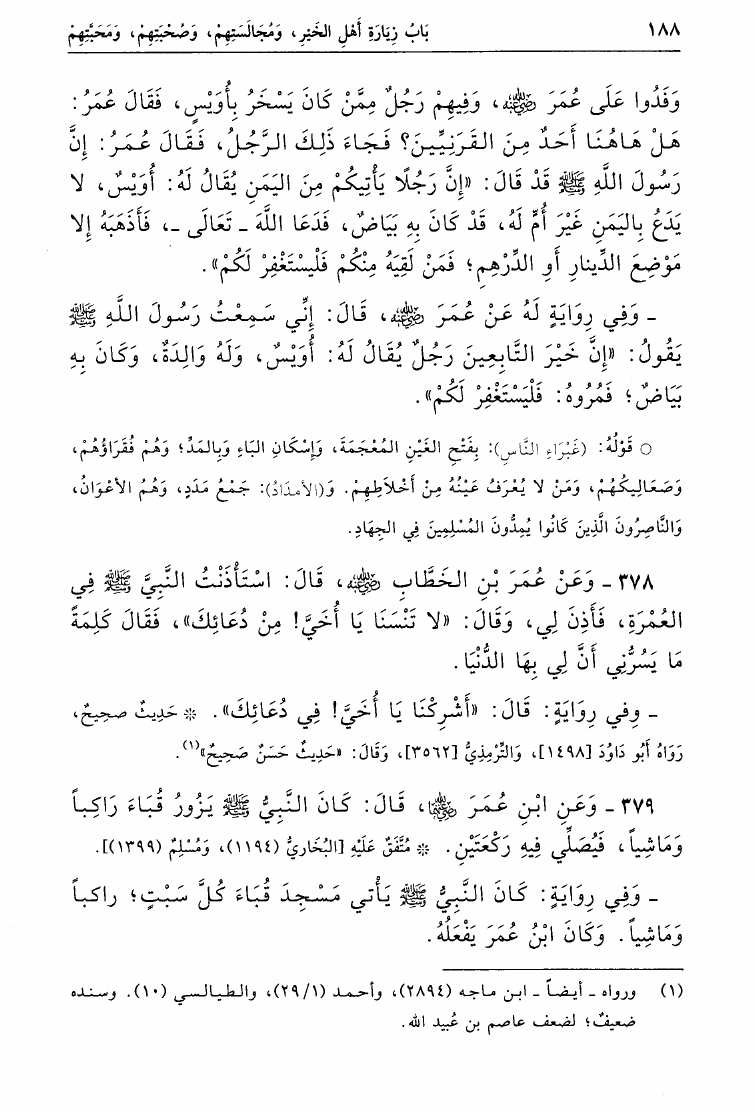 ١٨٨ بَابُ زِيَارَةِ أَهْلِ الخَيْرِ، وَمُجَالَسَتِهِمْ، وَصُحْبَتِهِمْ، وَمَحَبَّتِهِمْ
وَفَدُوا عَلَى عُمَرَ رضي الله عنه، وَفِيهِمْ رَجُلٌ مِمَّنْ كَانَ يَسْخَرُ بِأُوَيْسٍ، فَقَالَ عُمَرُ:
هَلْ هَاهُنَا أَحَدٌ مِنَ القَرَنِيِّينَ؟ فَجَاءَ ذَلِكَ الرَّجُلُ، فَقَالَ عُمَرُ: إِنَّ
رَسُولَ اللَّهِ ﷺ قَدْ قَالَ: «إِنَّ رَجُلًا يَأْتِيكُمْ مِنَ اليَمَنِ يُقَالُ لَهُ: أُوَيْسٌ، لا
يَدَعُ بِاليَمَنِ غَيْرَ أُمٍّ لَهُ، قَدْ كَانَ بِهِ بَيَاضٌ، فَدَعَا اللَّهَ ـ تَعَالَى ـ، فَأَذْهَبَهُ إِلا
مَوْضِعَ الدِّينَارِ أَوِ الدِّرْهِمِ؛ فَمَنْ لَقِيَهُ مِنْكُمْ فَلْيَسْتَغْفِرْ لَكُمْ».
ـ وَفِي رِوَايَةٍ لَهُ عَنْ عُمَرَ رضي الله عنه، قَالَ: إِنِّي سَمِعْتُ رَسُولَ اللَّهِ ﷺ
يَقُولُ: «إِنَّ خَيْرَ التَّابِعِينَ رَجُلٌ يُقَالُ لَهُ: أُوَيْسٌ، وَلَهُ وَالِدَةٌ، وَكَانَ بِهِ
بَيَاضٌ؛ فَمُرُوهُ: فَلْيَسْتَغْفِرْ لَكُمْ».
○ قَوْلُهُ: (غَبْرَاءِ النَّاسِ): بِفَتْحِ الغَيْنِ المُعْجَمَةِ، وَإِسْكَانِ البَاءِ وَبِالمَدِّ؛ وَهُمْ فُقَرَاؤُهُمْ،
وَصَعَالِيكُهُمْ، وَمَنْ لا يُعْرَفُ عَيْنُهُ مِنْ أَخْلاَطِهِمْ. وَ(الأَمْدَادُ): جَمْعُ مَدَدٍ، وَهُمُ الأَعْوَانُ،
وَالنَّاصِرُونَ الَّذِينَ كَانُوا يُمِدُّونَ المُسْلِمِينَ فِي الجِهَادِ.
٣٧٨ ـ وَعَنْ عُمَرَ بْنِ الخَطَّابِ رضي الله عنه، قَالَ: اسْتَأْذَنْتُ النَّبِيَّ ﷺ فِي
العُمْرَةِ، فَأَذِنَ لِي، وَقَالَ: «لا تَنْسَنَا يَا أُخَيَّ! مِنْ دُعَائِكَ»، فَقَالَ كَلِمَةً
مَا يَسُرُّنِي أَنَّ لِي بِهَا الدُّنْيَا.
ـ وفِي رِوَايَةٍ: قَالَ: «أَشْرِكْنَا يَا أُخَيَّ! فِي دُعَائِكَ». * حَدِيثٌ صحِيحٌ،
رَوَاهُ أَبُو دَاوُدَ [١٤٩٨]، وَالتِّرْمِذِيُّ [٣٥٦٢]، وَقَالَ: «حَدِيثٌ حَسَنٌ صَحِيحٌ»(١).
٣٧٩ ـ وَعَنِ ابْنِ عُمَرَ رضي الله عنهما، قَالَ: كَانَ النَّبِيُّ ﷺ يَزُورُ قُبَاءَ رَاكِباً
وَمَاشِياً، فَيُصَلِّي فِيهِ رَكْعَتَيْنِ. * مُتَّفَقٌ عَلَيْهِ [البُخَارِيُّ (١١٩٤)، وَمُسْلِمٌ (١٣٩٩)].
ـ وَفِي رِوَايَةٍ: كَانَ النَّبِيُّ ﷺ يَأْتي مَسْجِدَ قُبَاءَ كُلَّ سَبْتٍ؛ راكباً
وَمَاشِياً. وَكَانَ ابْنُ عُمَرَ يَفْعَلُهُ.
(١) ورواه ـ أيضاً ـ ابن ماجه (٢٨٩٤)، وأحمد (٢٩/١)، والطيالسي (١٠). وسنده
ضعيفٌ؛ لضعف عاصم بن عُبيد الله.